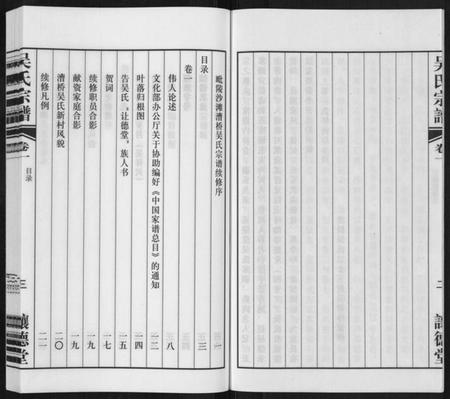 吴氏宗谱
卷一
二
让德堂
毗陵沙滩漕桥吴氏宗谱续修序
一
目录
三
卷一
伟人论述
八
文化部办公厅关于协助编好《中国家谱总目》的通知
一二
叶落归根图
一四
告吴氏,让德堂,族人书
一五
贺词
一七
献资家庭合影
一九
续修职员合影
一九
漕桥吴氏新村风貌
二〇
续修凡例
二一
吴氏宗谱
卷一
目录
三
让德堂